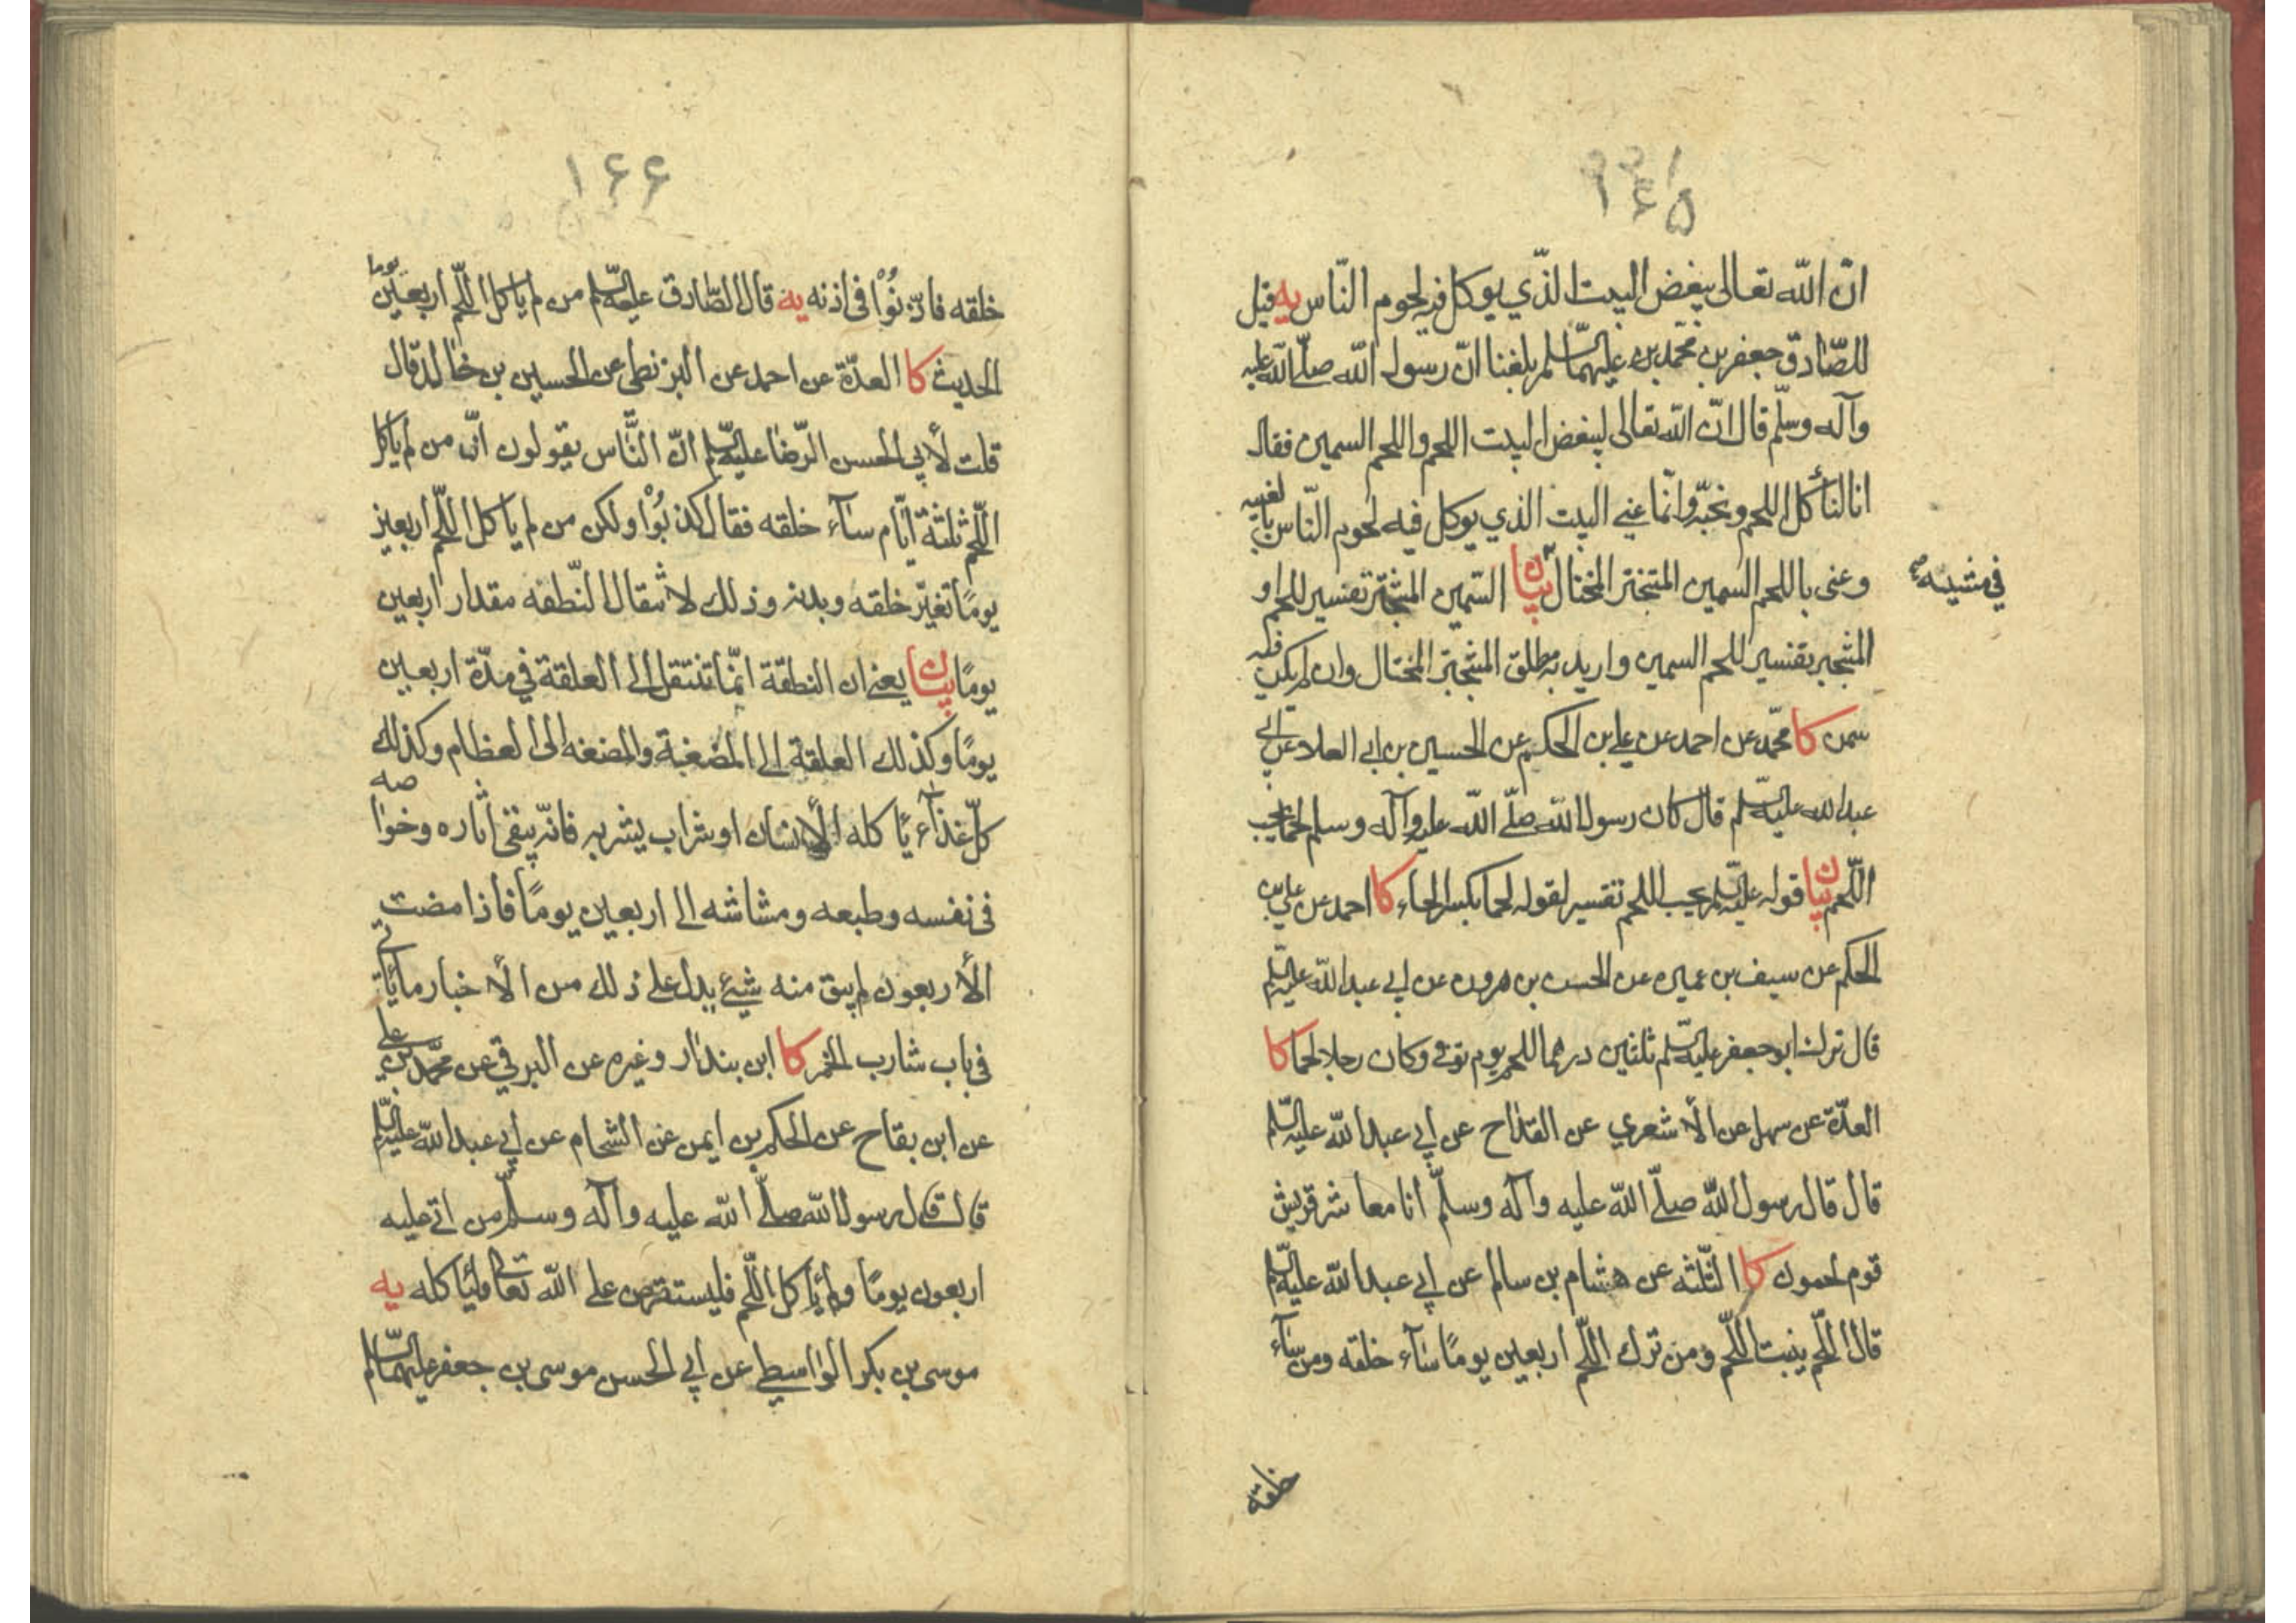 ١٦٥
انّ الله تعالى يبغض البيت الذّي يوكل فيه لحوم النّاس يه قيل
للصّادق جعفر بن محمّد بن عليهما السّلم بلغنا انّ رسول الله صلّى الله عليه
وآله وسلّم قال انّ الله تعالى ليبغض البيت اللحم واللحم السمين فقال
انا لنأكل اللحم ونحبّه وانّما عنى البيت الذي يوكل فيه لحوم النّاس بالغيبه
وعنى باللحم السمين المتبختر المختال بيان السّمين المتبختر تفسير للحم او
في مشيه
المتجبر تفسير للحم السمين واريد به مطلق المتبختر المختال وان لم يكن فيه
سمن كا محمّد عن احمد عن علي بن الحكم عن الحسين بن ابي العلا عن ابي
عبد الله عليه السّلم قال كان رسول الله صلّى الله عليه وآله وسلم لحما يحب
اللّحم بيان قوله عليه السّلم يحب اللحم تفسير لقوله لحما بكسر الحاء كا احمد عن علي بن
الحكم عن سيف بن عميره عن الحسن بن هرون عن ابي عبد الله عليه السّلم
قال ترك ابو جعفر عليه السّلم ثلثين درهما للحم يوم توفي وكان رجلا لحما كا
العدّة عن سهل عن الأشعري عن القدّاح عن ابي عبد الله عليه السّلم
قال قال رسول الله صلّى الله عليه وآله وسلّم انا معاشر قريش
قوم لحمون كا الثّلثه عن هشام بن سالم عن ابي عبد الله عليه السّلم
قال اللّحم ينبت اللّحم ومن ترك اللّحم اربعين يومًا سآء خلقه ومن سآء
خلقه
١٦٦
خلقه فاذّنُوْا في اذنه يه قال الصّادق عليه السّلم من لم ياكل اللّحم اربعين يوما
الحديث كا العدّة عن احمد عن البزنطي عن الحسين بن خالد قال
قلت لأبي الحسن الرّضا عليه السّلم انّ النّاس يقولون انّ من لم ياكل
اللّحم ثلثة ايّام سآء خلقه فقال كذبُوْا ولكن من لم ياكل اللّحم اربعين
يومًا تغيّر خلقه وبدنه وذلك لانتقال النّطفه مقدار اربعين
يومًا بيان يعني ان النطفة انّما تنتقل الى العلقة في مدّة اربعين
يومًا وكذلك العلقة الى المضغة والمضغه الى العظام وكذلك
كلّ غذآء يأكله الأنسان او شراب يشربه فانّه يبقى أثاره وخواصه
في نفسه وطبعه ومشاشه الى اربعين يومًا فاذا مضت
الأربعون لم يبق منه شيئ يدل على ذلك من الأخبار ما يأتي
في باب شارب الخمر كا ابن بندار وغيره عن البرقي عن محمّد بن علي
عن ابن بقاح عن الحكم بن ايمن عن الشحام عن ابي عبد الله عليه السّلم
قال قال رسول الله صلّى الله عليه وآله وسلّم من اتى عليه
اربعون يومًا ولم يأكل اللّحم فليستقرض على الله تعالى وليأكله يه
موسى بن بكر الواسطي عن ابي الحسن موسى بن جعفر عليهما السّلم